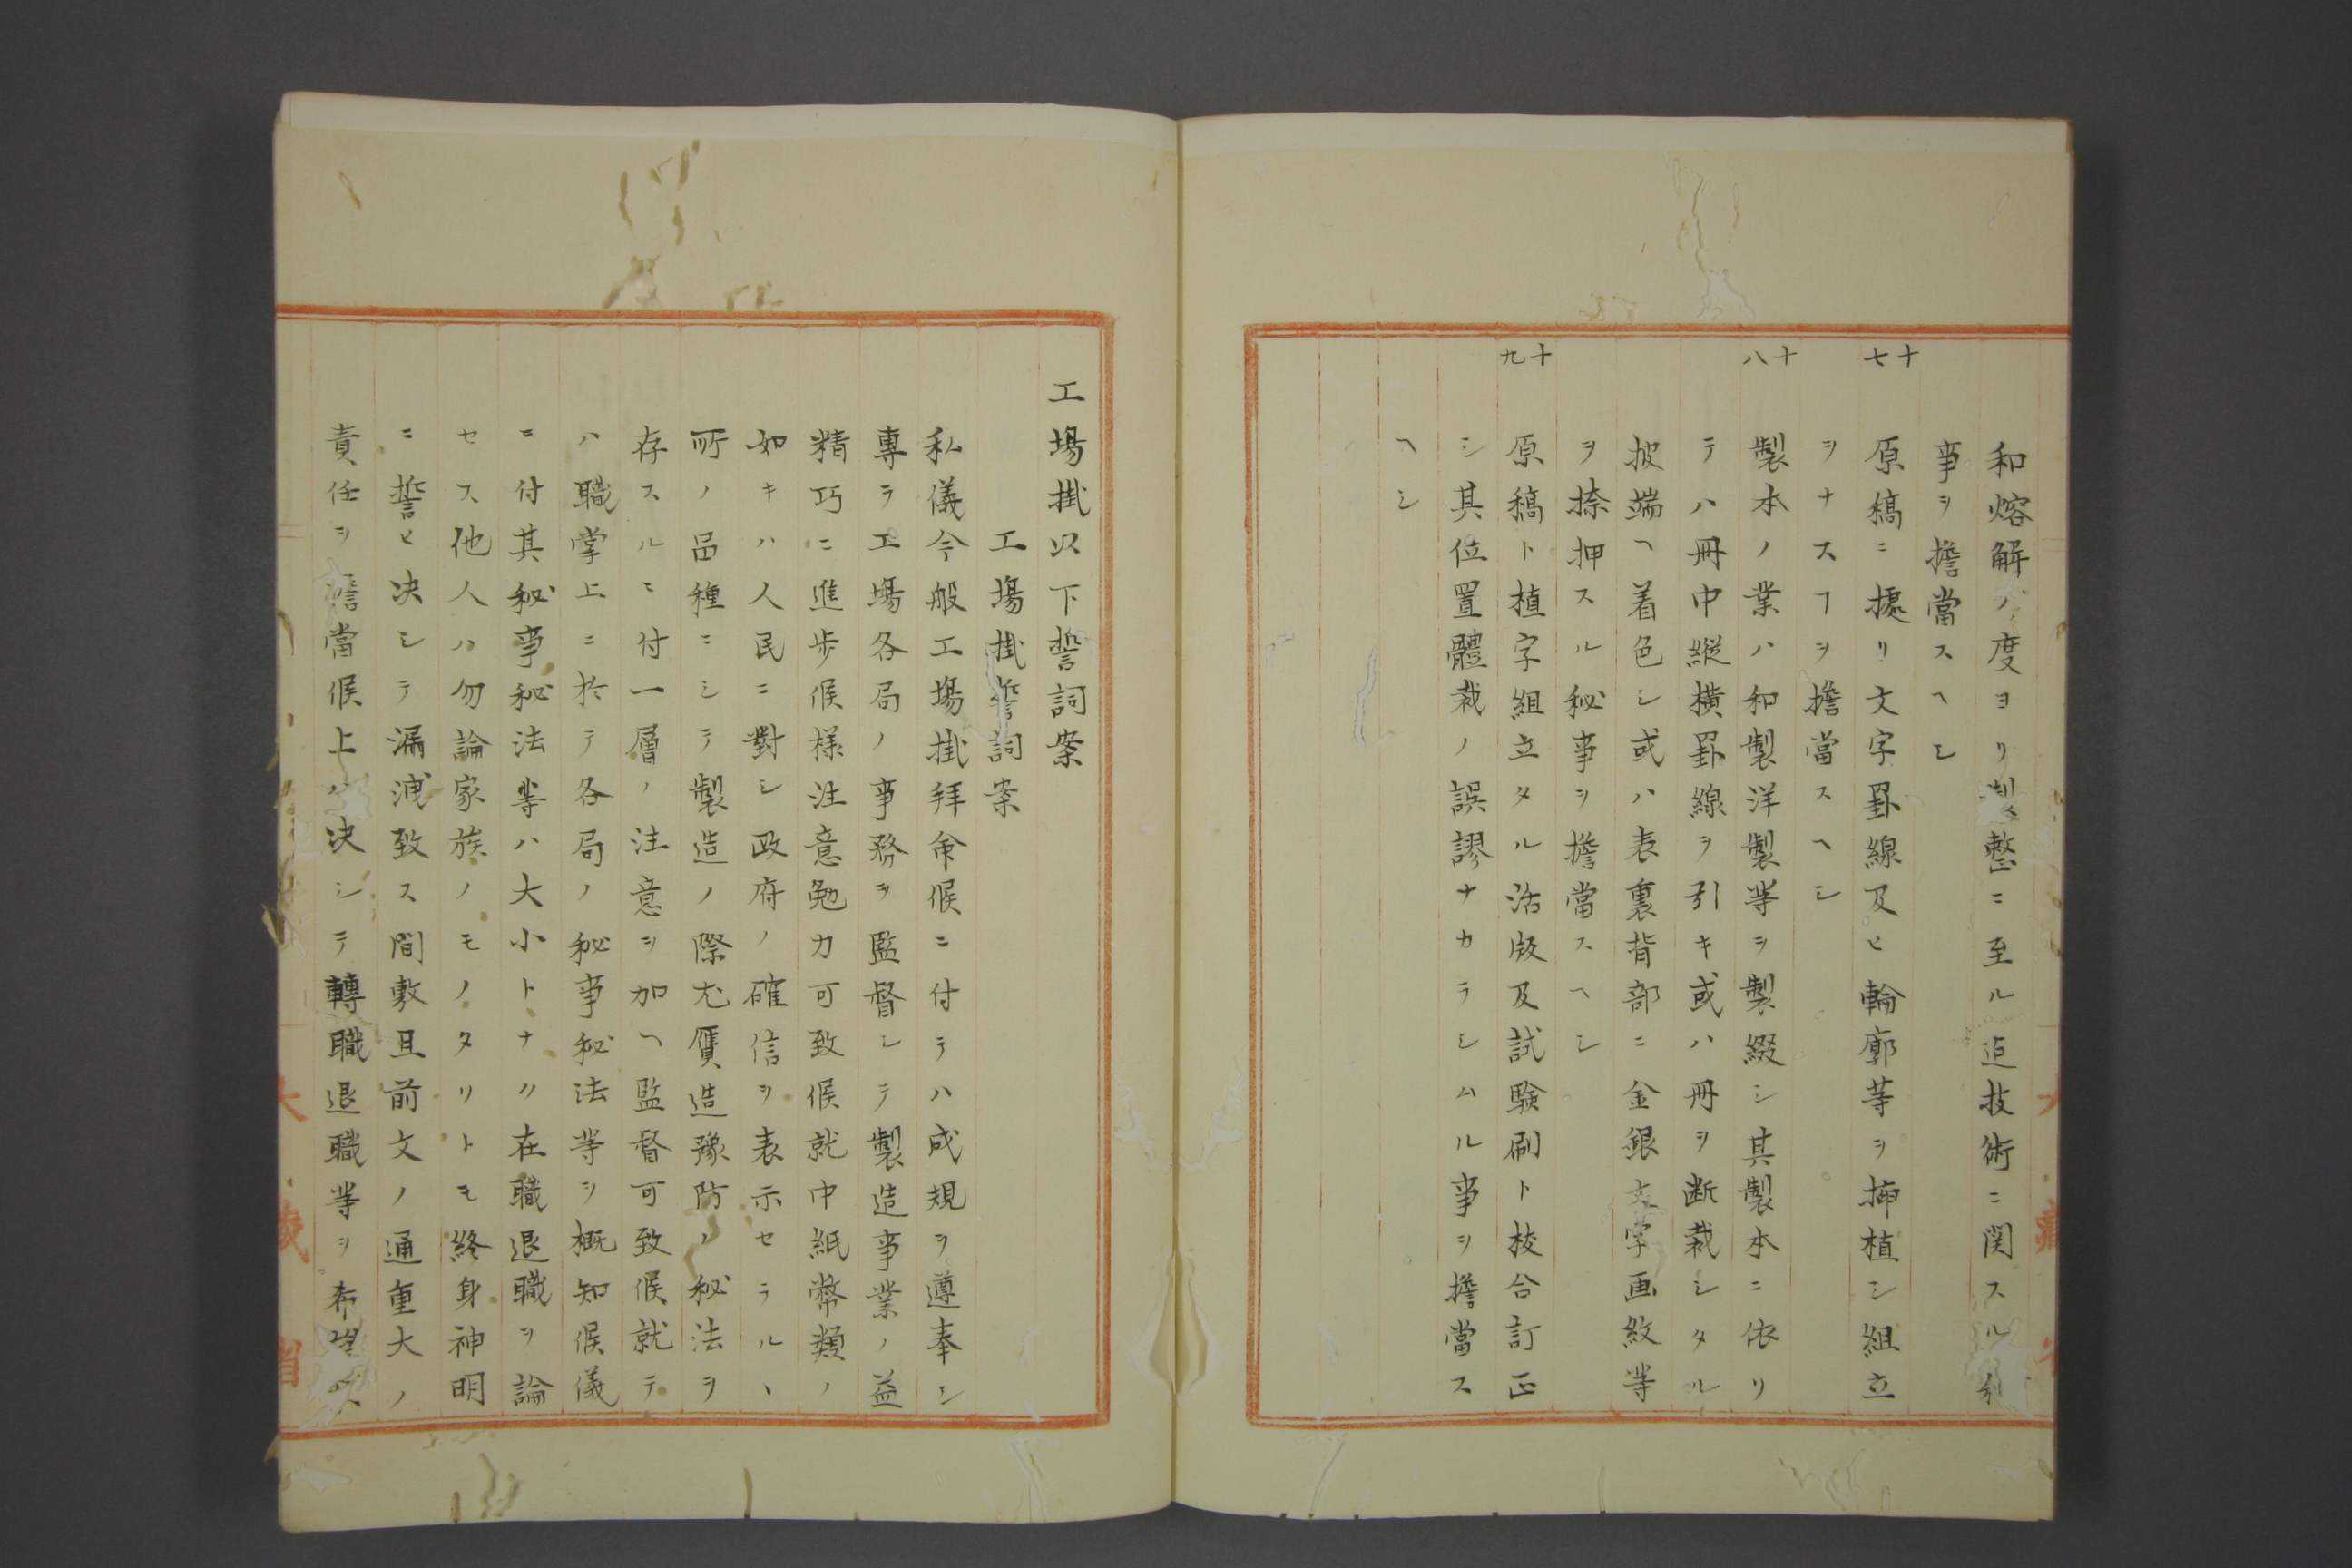 和熔解ノ度ヨリ製整ニ至ル迠技術ニ関スル
事ヲ擔當スヘシ
十七
原稿ニ據リ文字罫線及ヒ輪廓等ヲ挿植シ組立
ヲナスヿヲ擔當スヘシ
十八
製本ノ業ハ和製洋製等ヲ製綴シ其製本ニ依リ
テハ冊中縦横罫線ヲ引キ或ハ冊ヲ断裁シタル
披端ヘ着色シ或ハ表裏背部ニ金銀文字画紋等
ヲ捺押スル秘事ヲ擔當スヘシ
十九
原稿ト植字組立タル活版及試験刷ト校合訂正
シ其位置體裁ノ誤謬ナカラシムル事ヲ擔當ス
ヘシ
工場掛以下誓詞案
工場掛誓詞案
私儀今般工場掛拜命候ニ付テハ成規ヲ遵奉シ
專ラ工場各局ノ事務ヲ監督シテ製造事業ノ益
精巧ニ進歩候様注意勉力可致候就中紙幣類ノ
如キハ人民ニ對シ政府ノ確信ヲ表示セラルヽ
所ノ品種ニシテ製造ノ際尤贋造豫防ノ秘法ヲ
存スルニ付一層ノ注意ヲ加ヘ監督可致候就テ
ハ職掌上ニ於テ各局ノ秘事秘法等ヲ概知候儀
ニ付其秘事秘法等ハ大小トナク在職退職ヲ論
セス他人ハ勿論家族ノモノタリトモ終身神明
ニ誓ヒ决シテ漏洩致ス間敷且前文ノ通重大ノ
責任ヲ擔當候上ハ决シテ轉職退職等ヲ希望
大藏省